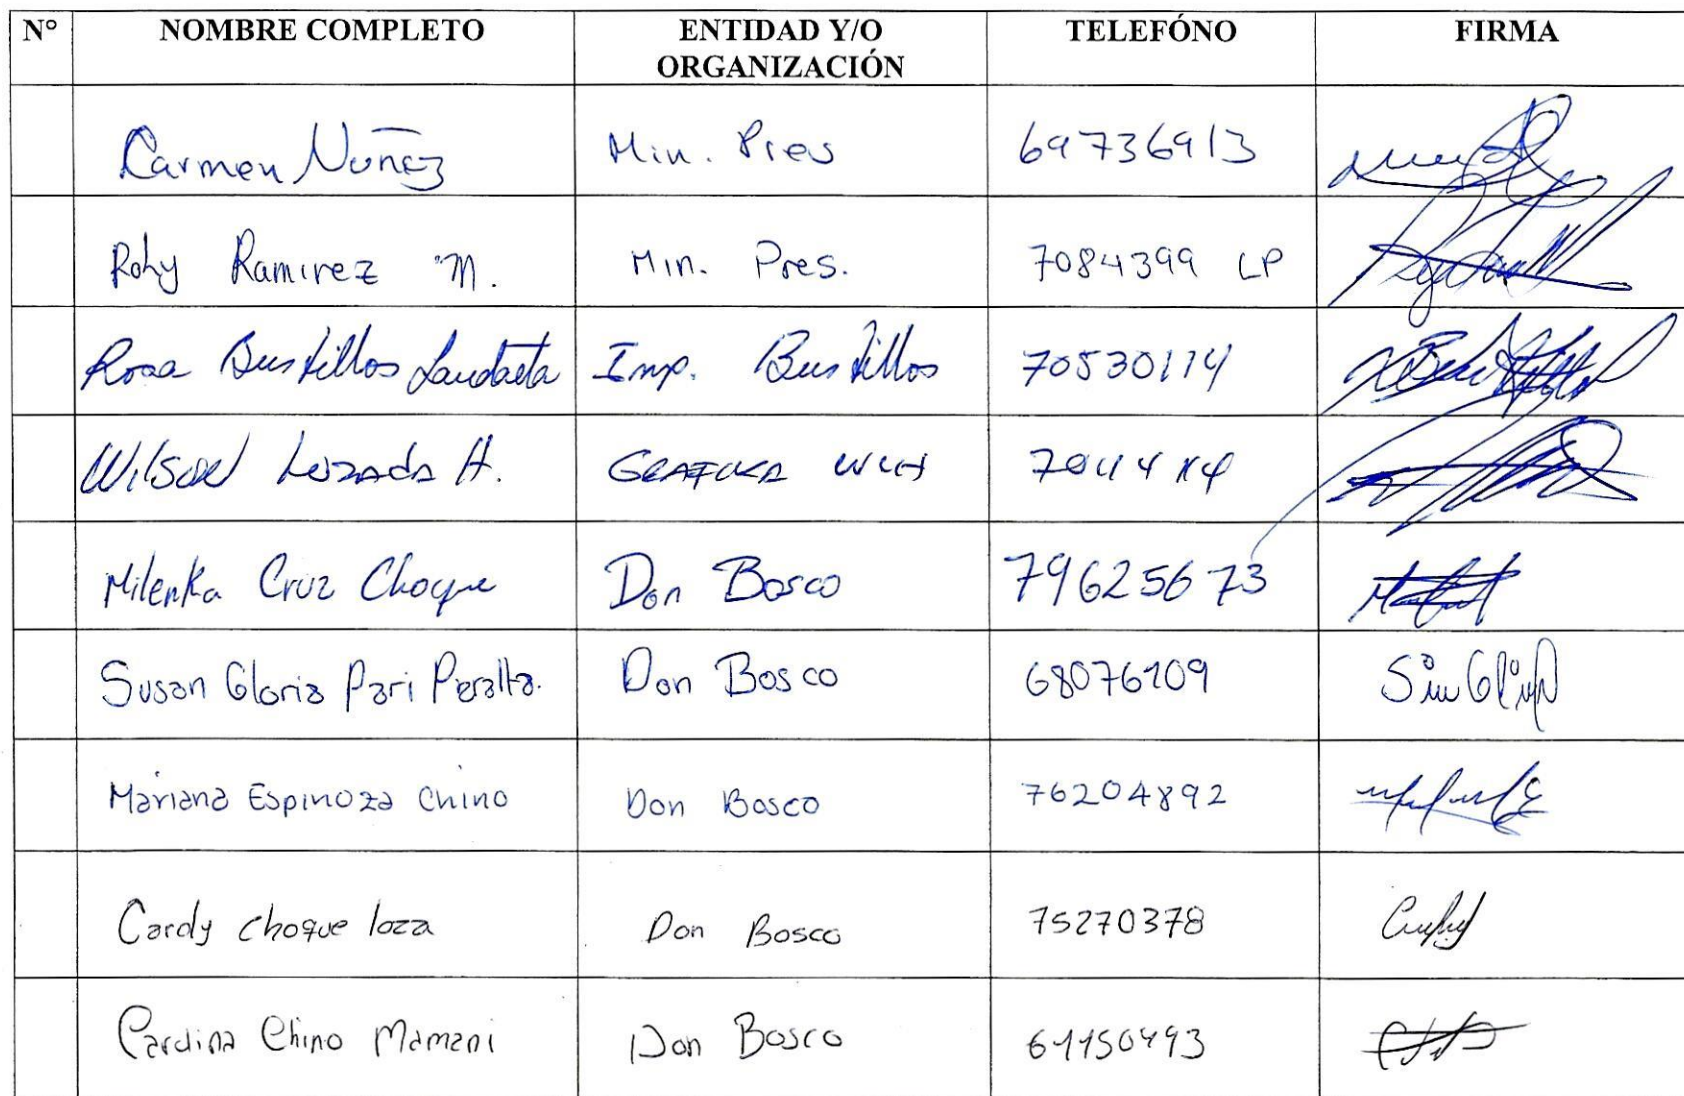 N° NOMBRE COMPLETO ENTIDAD Y/O ORGANIZACIÓN TELEFÓNO FIRMA
Carmen Nuñez Min. Pres 69736913
Ramirez M. Min. Pres. 7084399 LP
Rosa Bustillos Landaeta Imp. Bustillos 70530114
Wilson Lozada H.
Milenka Cruz Choque Don Bosco 79625673
Susan Gloria Pari Peralta. Don Bosco 68076109
Mariana Espinoza Chino Don Bosco 76204892
Cardy choque loza Don Bosco 75270378
Chino Mamani Don Bosco 61150493